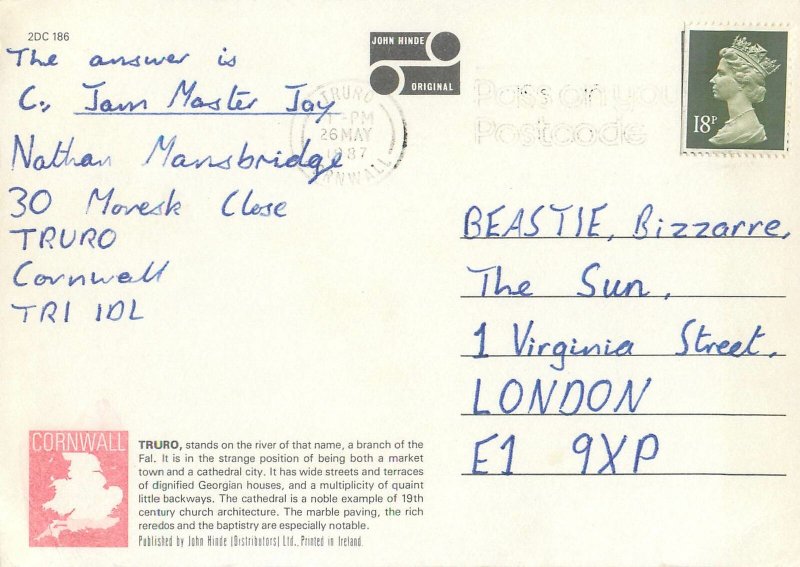 2DC 186
The answer is
C., Jam Master Jay
Nathan Mansbridge
30 Moresk Close
TRURO
Cornwall
TR1 1DL
JOHN HINDE
ORIGINAL
TRURO
-PM
26 MAY
1987
CORNWALL
Pass on your
Postcode
18P
BEASTIE, Bizzarre,
The Sun,
1 Virginia Street,
LONDON
E1 9XP
CORNWALL
TRURO, stands on the river of that name, a branch of the
Fal. It is in the strange position of being both a market
town and a cathedral city. It has wide streets and terraces
of dignified Georgian houses, and a multiplicity of quaint
little backways. The cathedral is a noble example of 19th
century church architecture. The marble paving, the rich
reredos and the baptistry are especially notable.
Published by John Hinde (Distributors) Ltd., Printed in Ireland.